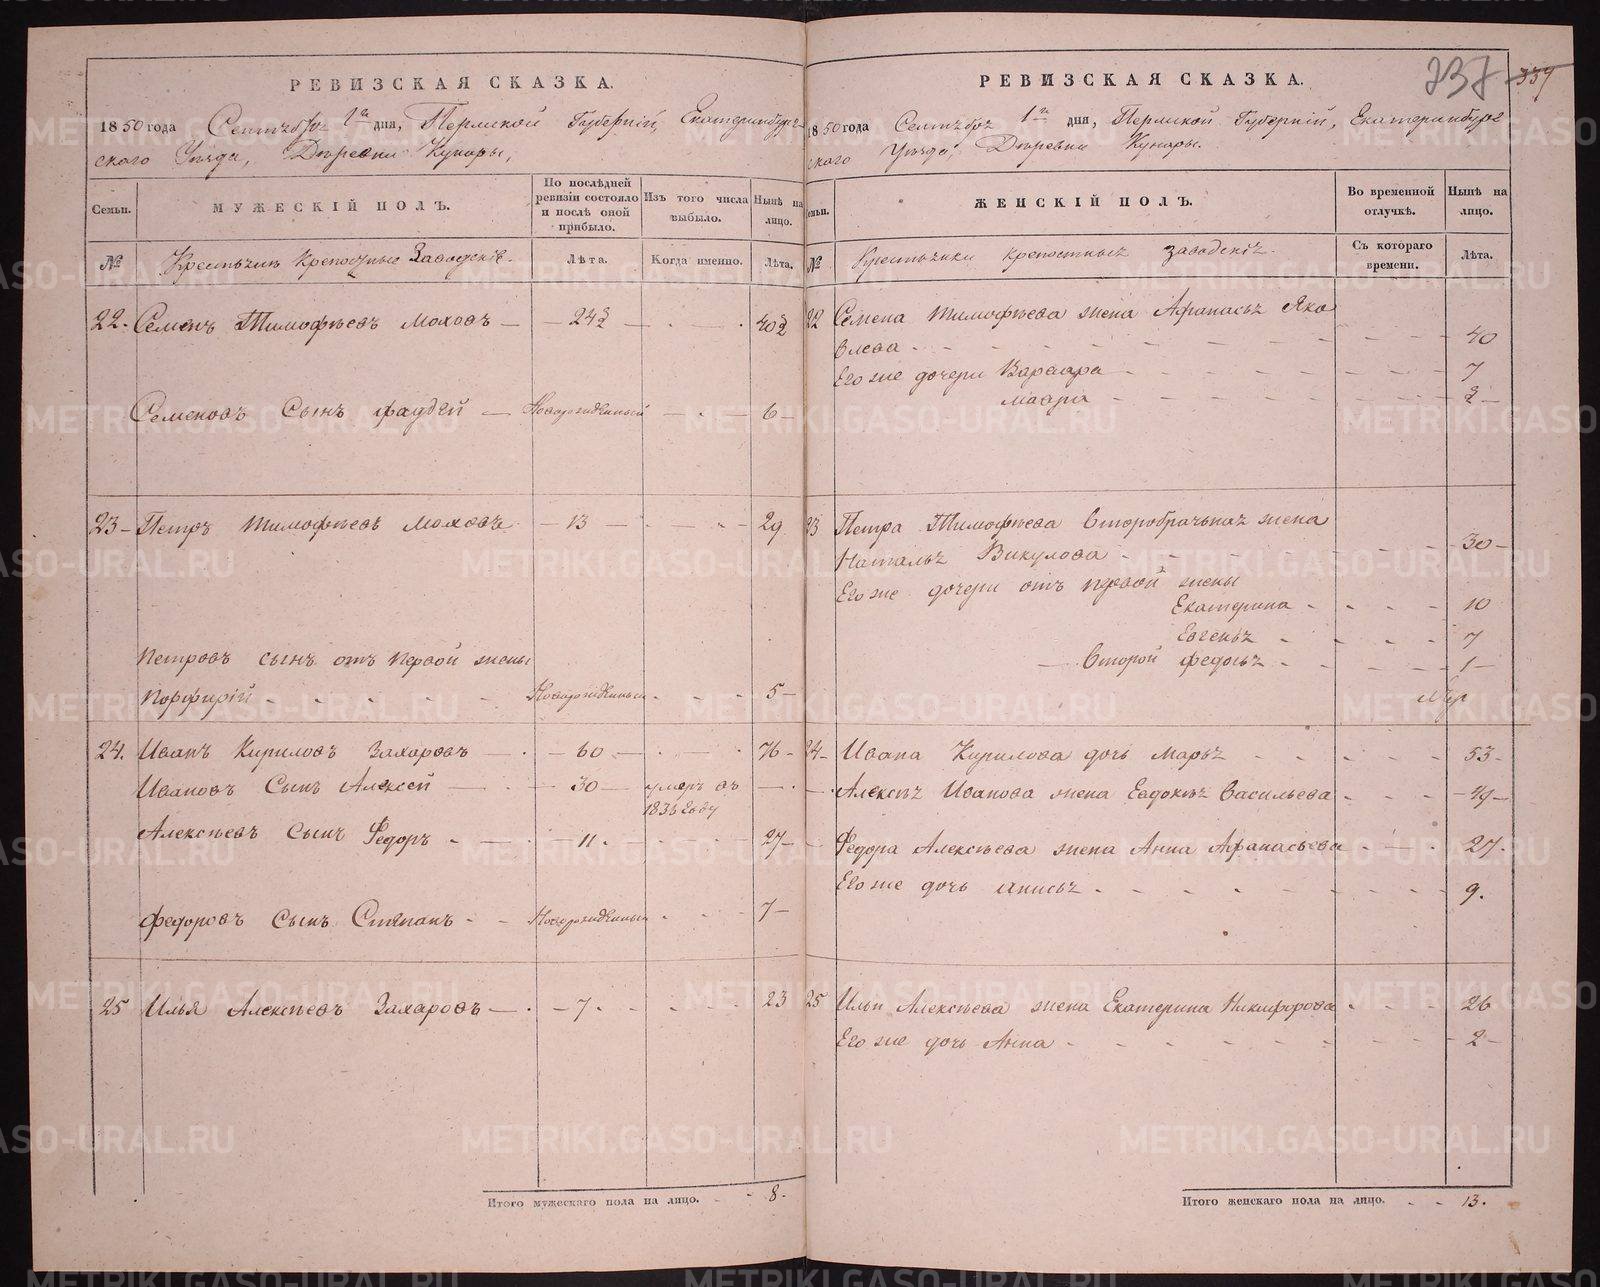 РЕВИЗСКАЯ СКАЗКА.
1850 года Сентября 1го дня, Пермской Губернии, Екатеринбург-
ского Уѣзда, Деревни Кунары,
Семьи.
МУЖЕСКІЙ ПОЛЪ.
По послѣдней ревизіи состояло и послѣ оной прибыло.
Изъ того числа выбыло.
Нынѣ на лицо.
№
Крестьянъ крепостные Заводскіе.
Лѣта.
Когда именно.
Лѣта.
22. Семенъ Тимофѣевъ Моховъ — 24 — 40
Семеновъ Сынъ Фаддей — Новорожденный — 6
23 Петръ Тимофѣевъ Моховъ — 13 — 29
Петровъ сынъ отъ первой жены
Порфирій - - - Новорожденный - - - 5
24. Иванъ Кириловъ Захаровъ — 60 — 76
Ивановъ Сынъ Алексей — 30 — умеръ въ
1836 году
Алексѣевъ Сынъ Федоръ - 11 - 27
Федоровъ Сынъ Степанъ - Новорожденный - 7
25 Илья Алексѣевъ Захаровъ — 7 - 23
Итого мужескаго пола на лицо. - - 8.
РЕВИЗСКАЯ СКАЗКА.
737 339
1850 года Сентября 1го дня, Пермской Губерніи, Екатеринбург
ского Уѣзда, Деревни Кунары.
Семьи.
ЖЕНСКІЙ ПОЛЪ.
Во временной отлучкѣ.
Нынѣ на лицо.
№
Крестьянки крепостныя заводскія.
Съ котораго времени.
Лѣта.
22 Семена Тимофѣева жена Афанасья Яко
влева - - - 40
Его же дочери Варвара - - - 7
Мавра - - -
23 Петра Тимофѣева второбрачьная жена
Наталья Викулова - - - 30
Его же дочери отъ первой жены
Екатерина - - - 10
Евгенья - - - 7
второй Федосья - - - 1
24. Ивана Кирилова дочь Марья - - - 53
Алексѣя Иванова жена Евдокѣя Васильева - - - 49
Федора Алексѣева жена Анна Афанасьева - - - 27.
Его же дочь Анисья - - - 9.
25 Ильи Алексѣева жена Екатерина Никифорова - - - 26
Его же дочь Анна - - - 2
Итого женскаго пола на лицо. - - 13.
METRIKI.GASO-URAL.RU